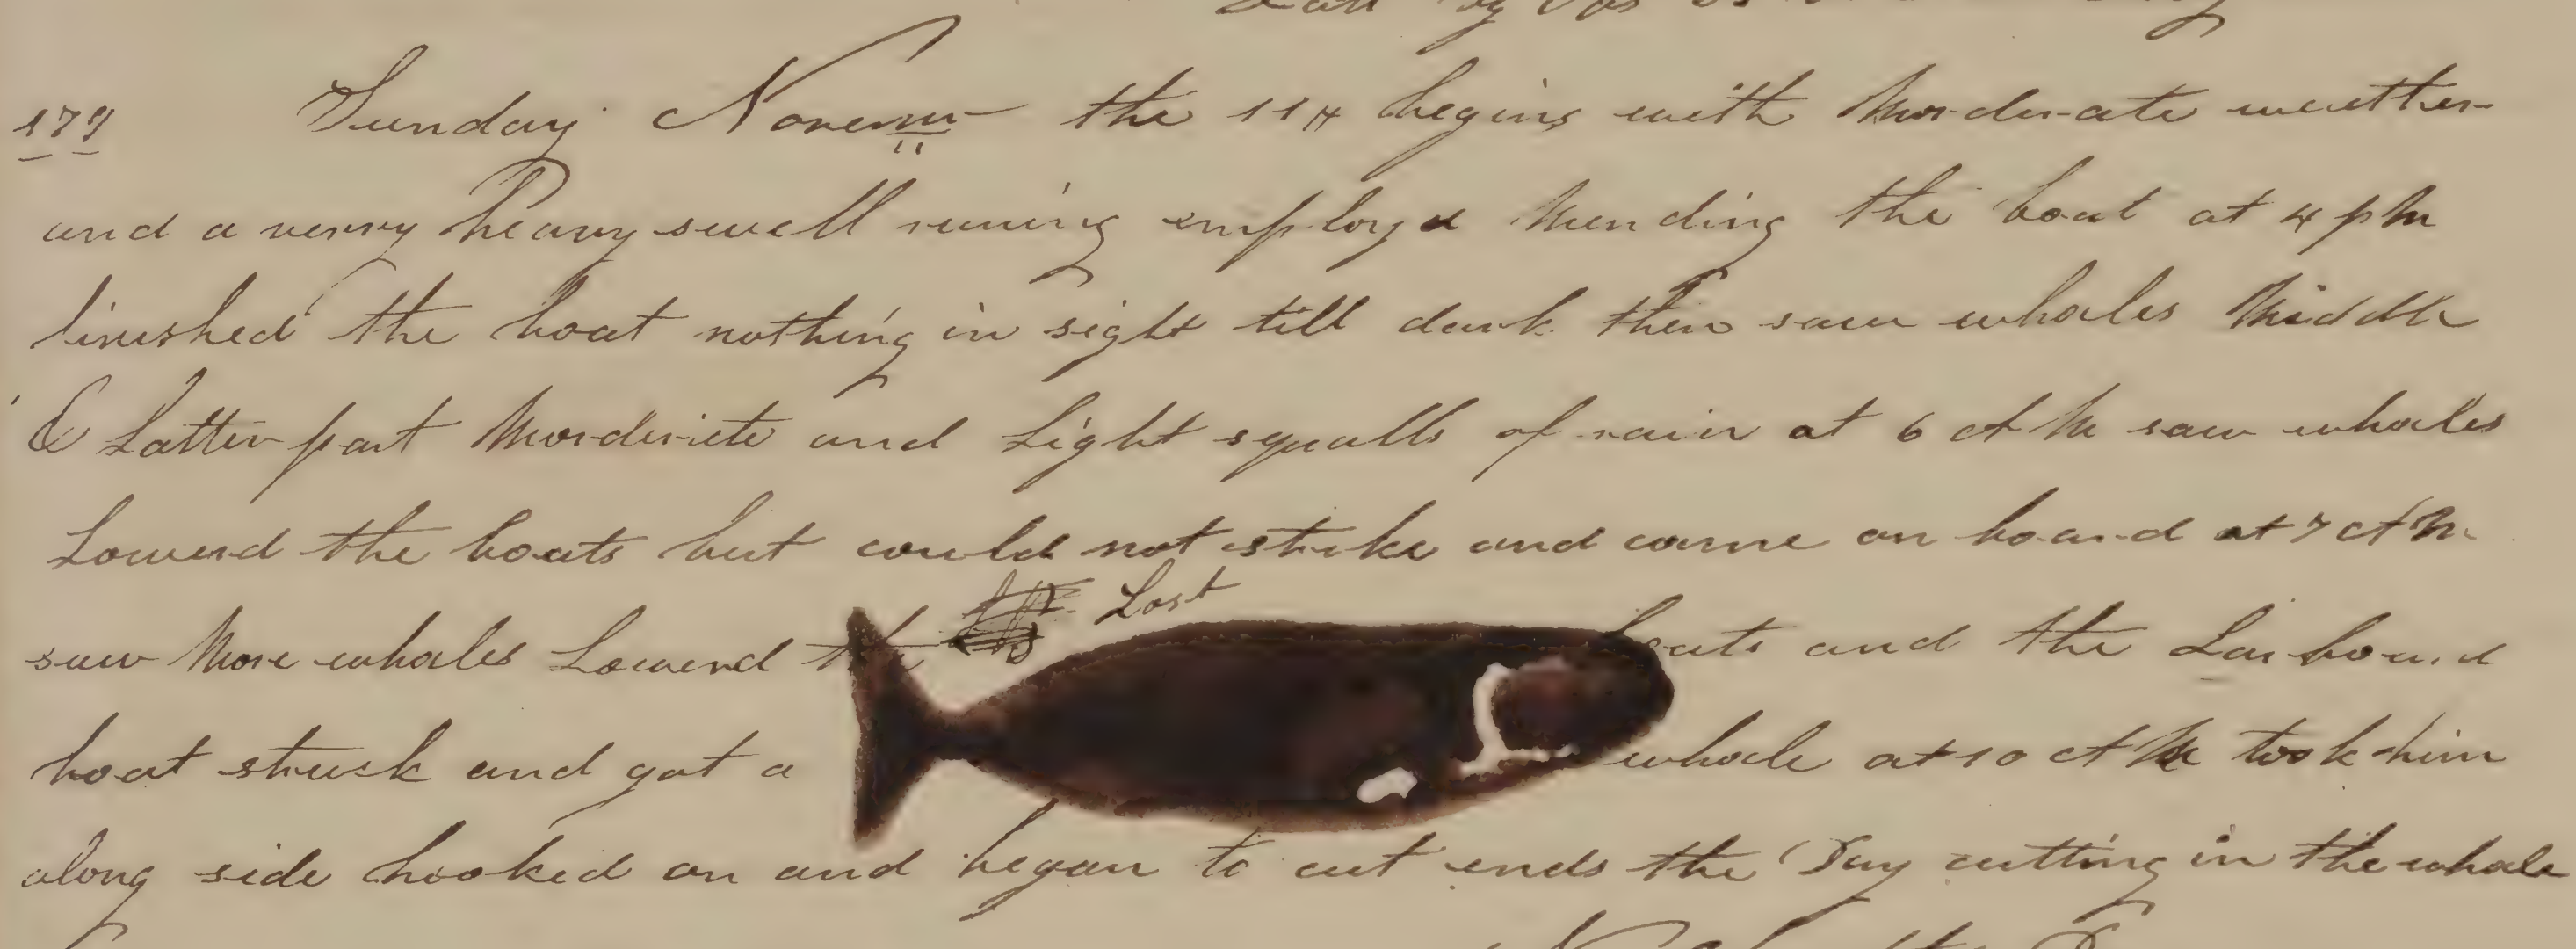 179 Sunday Novem the 11th begins with Morderate weather
and a verry heavy swell runing employd Mending the boat at 4 pM
finished the boat nothing in sight till dark then saw whales Middle
& Latter part Morderiete and Light squalls of rain at 6 AM saw whales
Lowerd the boats but could not strike and came on board at 7 AM
Lost
saw More whales Lowerd the boats and the Larboard
boat struck and got a whale at 10 AM took him
along side hooked on and began to cut ends the Day cutting in the whale